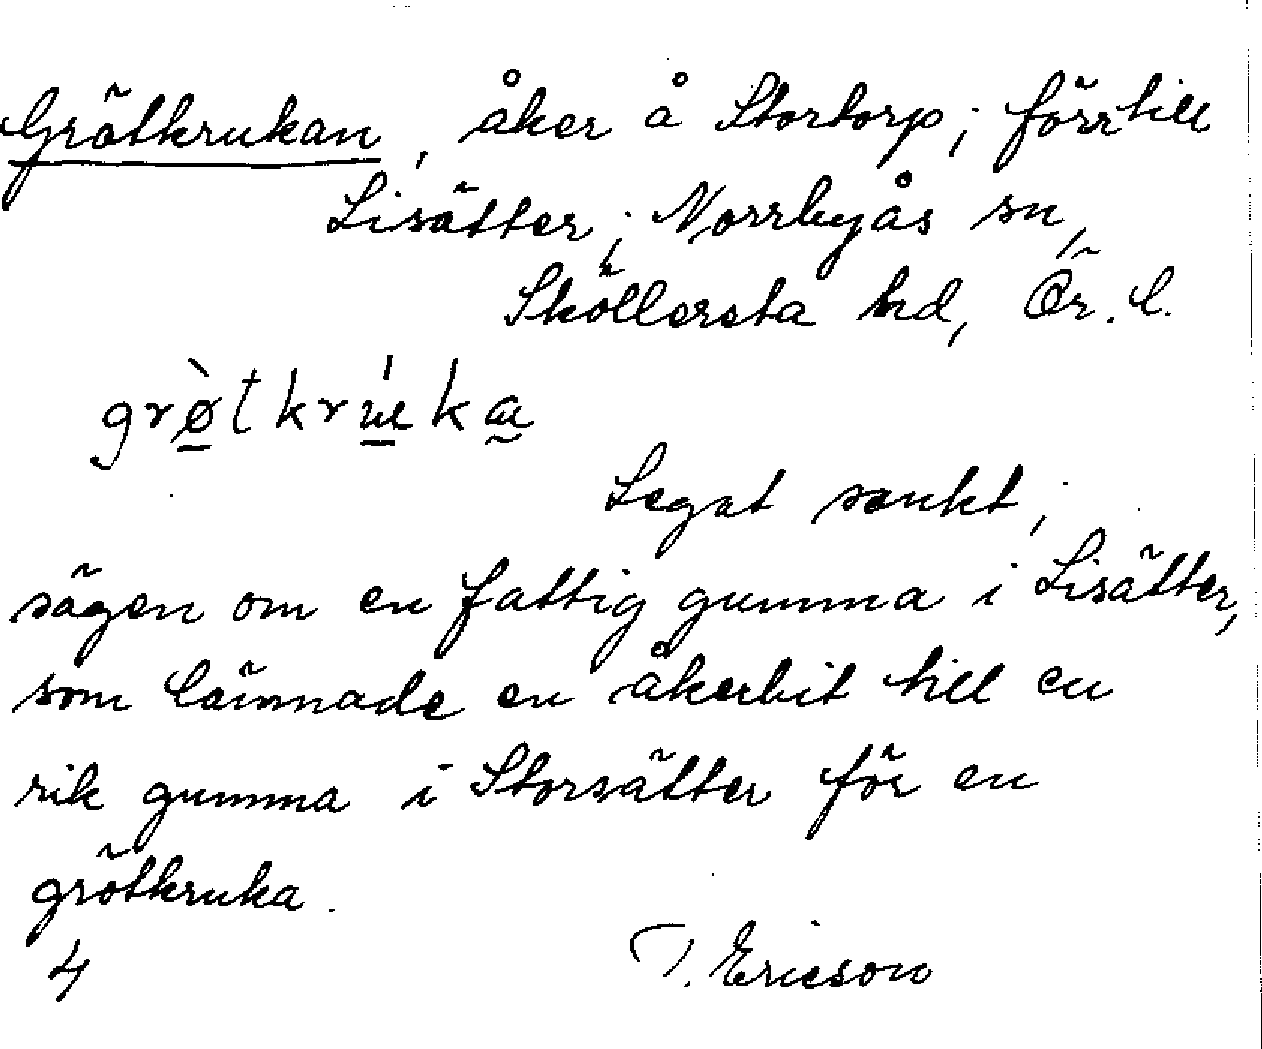 Grötkrukan, åker å Stortorp; förr till
Lisätter; Norrbyås sn,
Sköllersta hd, Ör. l.
grø̀tkrúka
Legat sankt;
sägen om en fattig gumma i Lisätter,
som lämnade en åkerbit till en
rik gumma i Storsätter för en
grötkruka.
4
T. Ericson